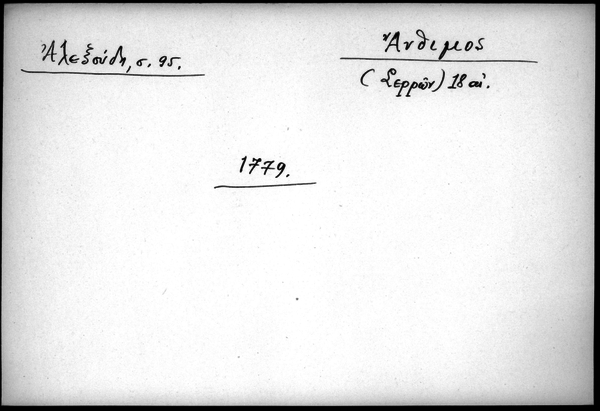 Ἄνθιμος
Ἀλεξούδη, σ. 95.
(Σερρῶν) 18 αἰ.
1779.